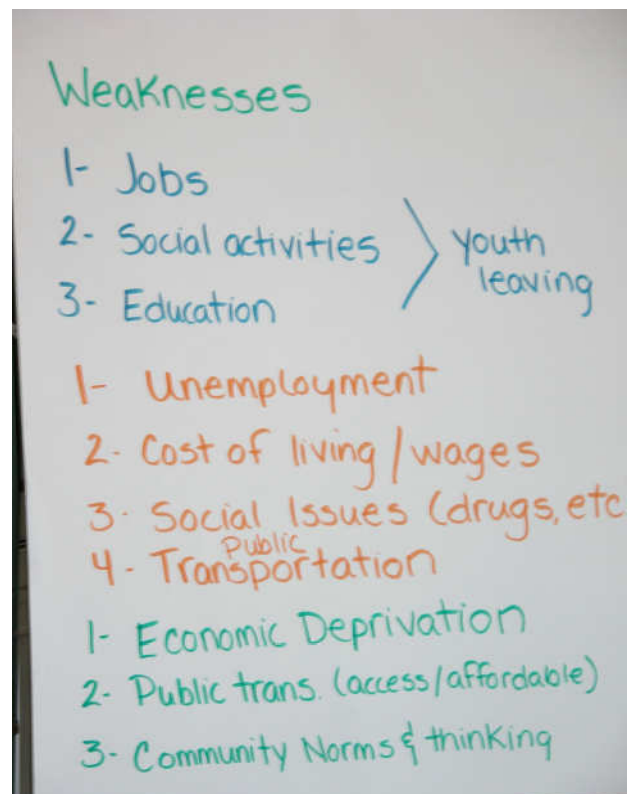 Weaknesses
1- Jobs
2- Social activities
3- Education
youth
leaving
1- Unemployment
2- Cost of living/wages
3- Social Issues (drugs, etc
Public
4- Transportation
1- Economic Deprivation
2- Public trans. (access/affordable)
3- Community Norms & thinking